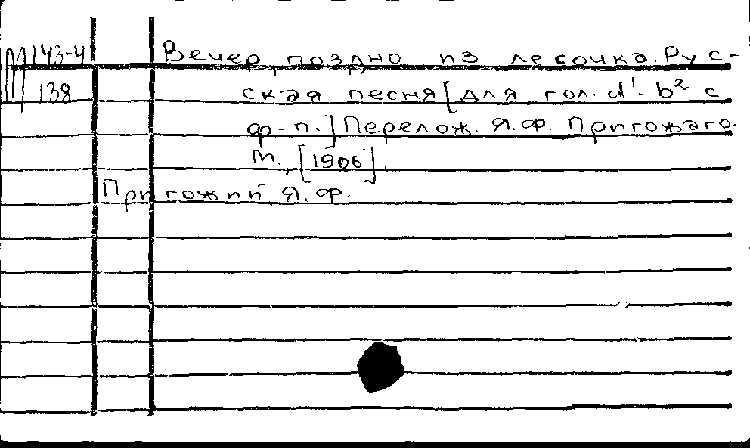 М 143-4
138
Вечер поздно из лесочка. Рус-
ская песня [для гол. d¹-b² с
ф-п.] Перелож. Я.Ф. Пригожаго.
М., [1906].
Пригожий, Я.Ф.